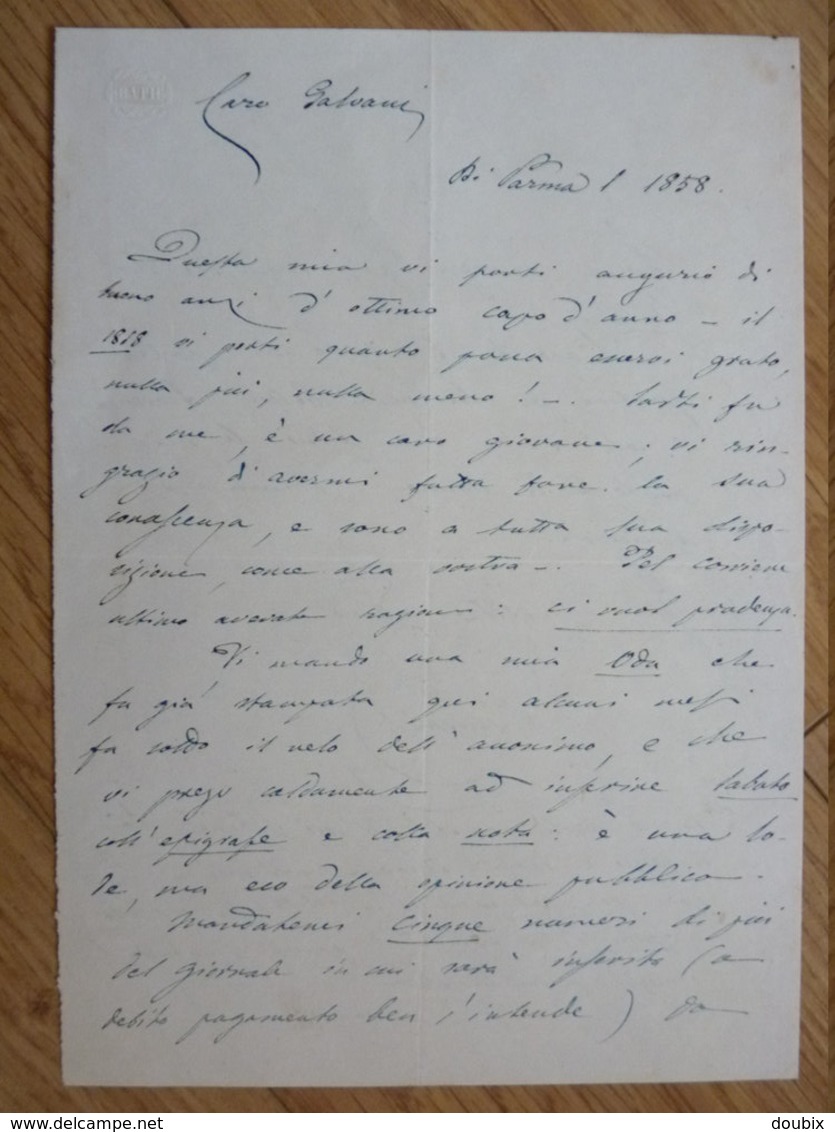 Caro Galvani
Di Parma 1 1858.
Questa mia vi porti augurio di
buono anzi d'ottimo capo d'anno — il
1858 vi porti quanto possa esservi grato,
nulla più, nulla meno! —. fu
da me, è un caro giovane; vi rin-
grazio d'avermi fatta fare la sua
conoscenza, e sono a tutta sua dispo-
sizione, come alla vostra —. Pel
ultimo avevate ragione: ci vuol prudenza.
Vi mando una mia Oda che
fu già stampata qui alcuni mesi
fa sotto il velo dell'anonimo, e che
vi prego caldamente ad inserire sabato
coll'epigrafe e colla nota: è una lo-
de, ma eco della opinione pubblica.
Mandatemi cinque numeri di più
del giornale in cui sarà inserita (a
debito pagamento ben s'intende) da
doubix
www.delcampe.net